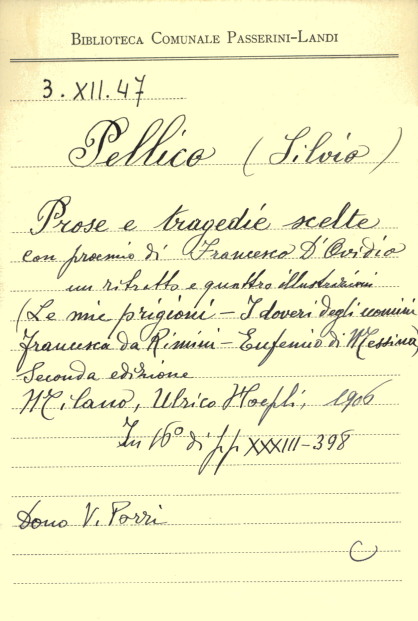 BIBLIOTECA COMUNALE PASSERINI-LANDI
3. XII. 47
Pellico (Silvio)
Prose e tragedie scelte
con proemio di Francesco D'Ovidio
un ritratto e quattro illustrazioni
(Le mie prigioni - I doveri degli uomini
Francesca da Rimini - Eufemio di Messina)
Seconda edizione
Milano, Ulrico Hoepli, 1906
In 16° di pp XXXIII-398
Dono V. Porri
C